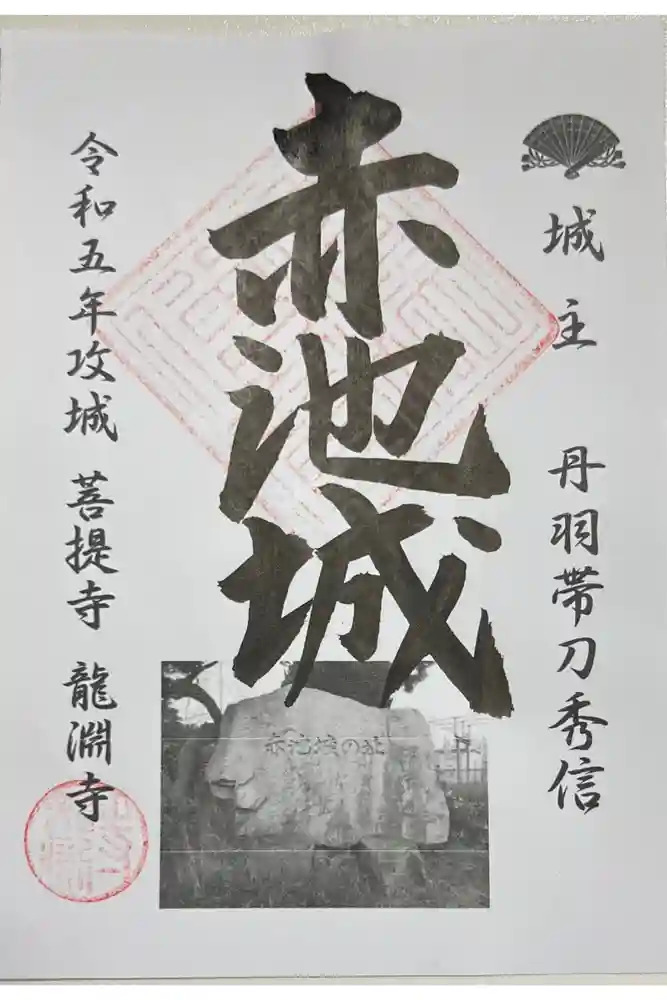 城主 丹羽帯刀秀信
赤池城
赤池城の址
令和五年攻城 菩提寺 龍淵寺